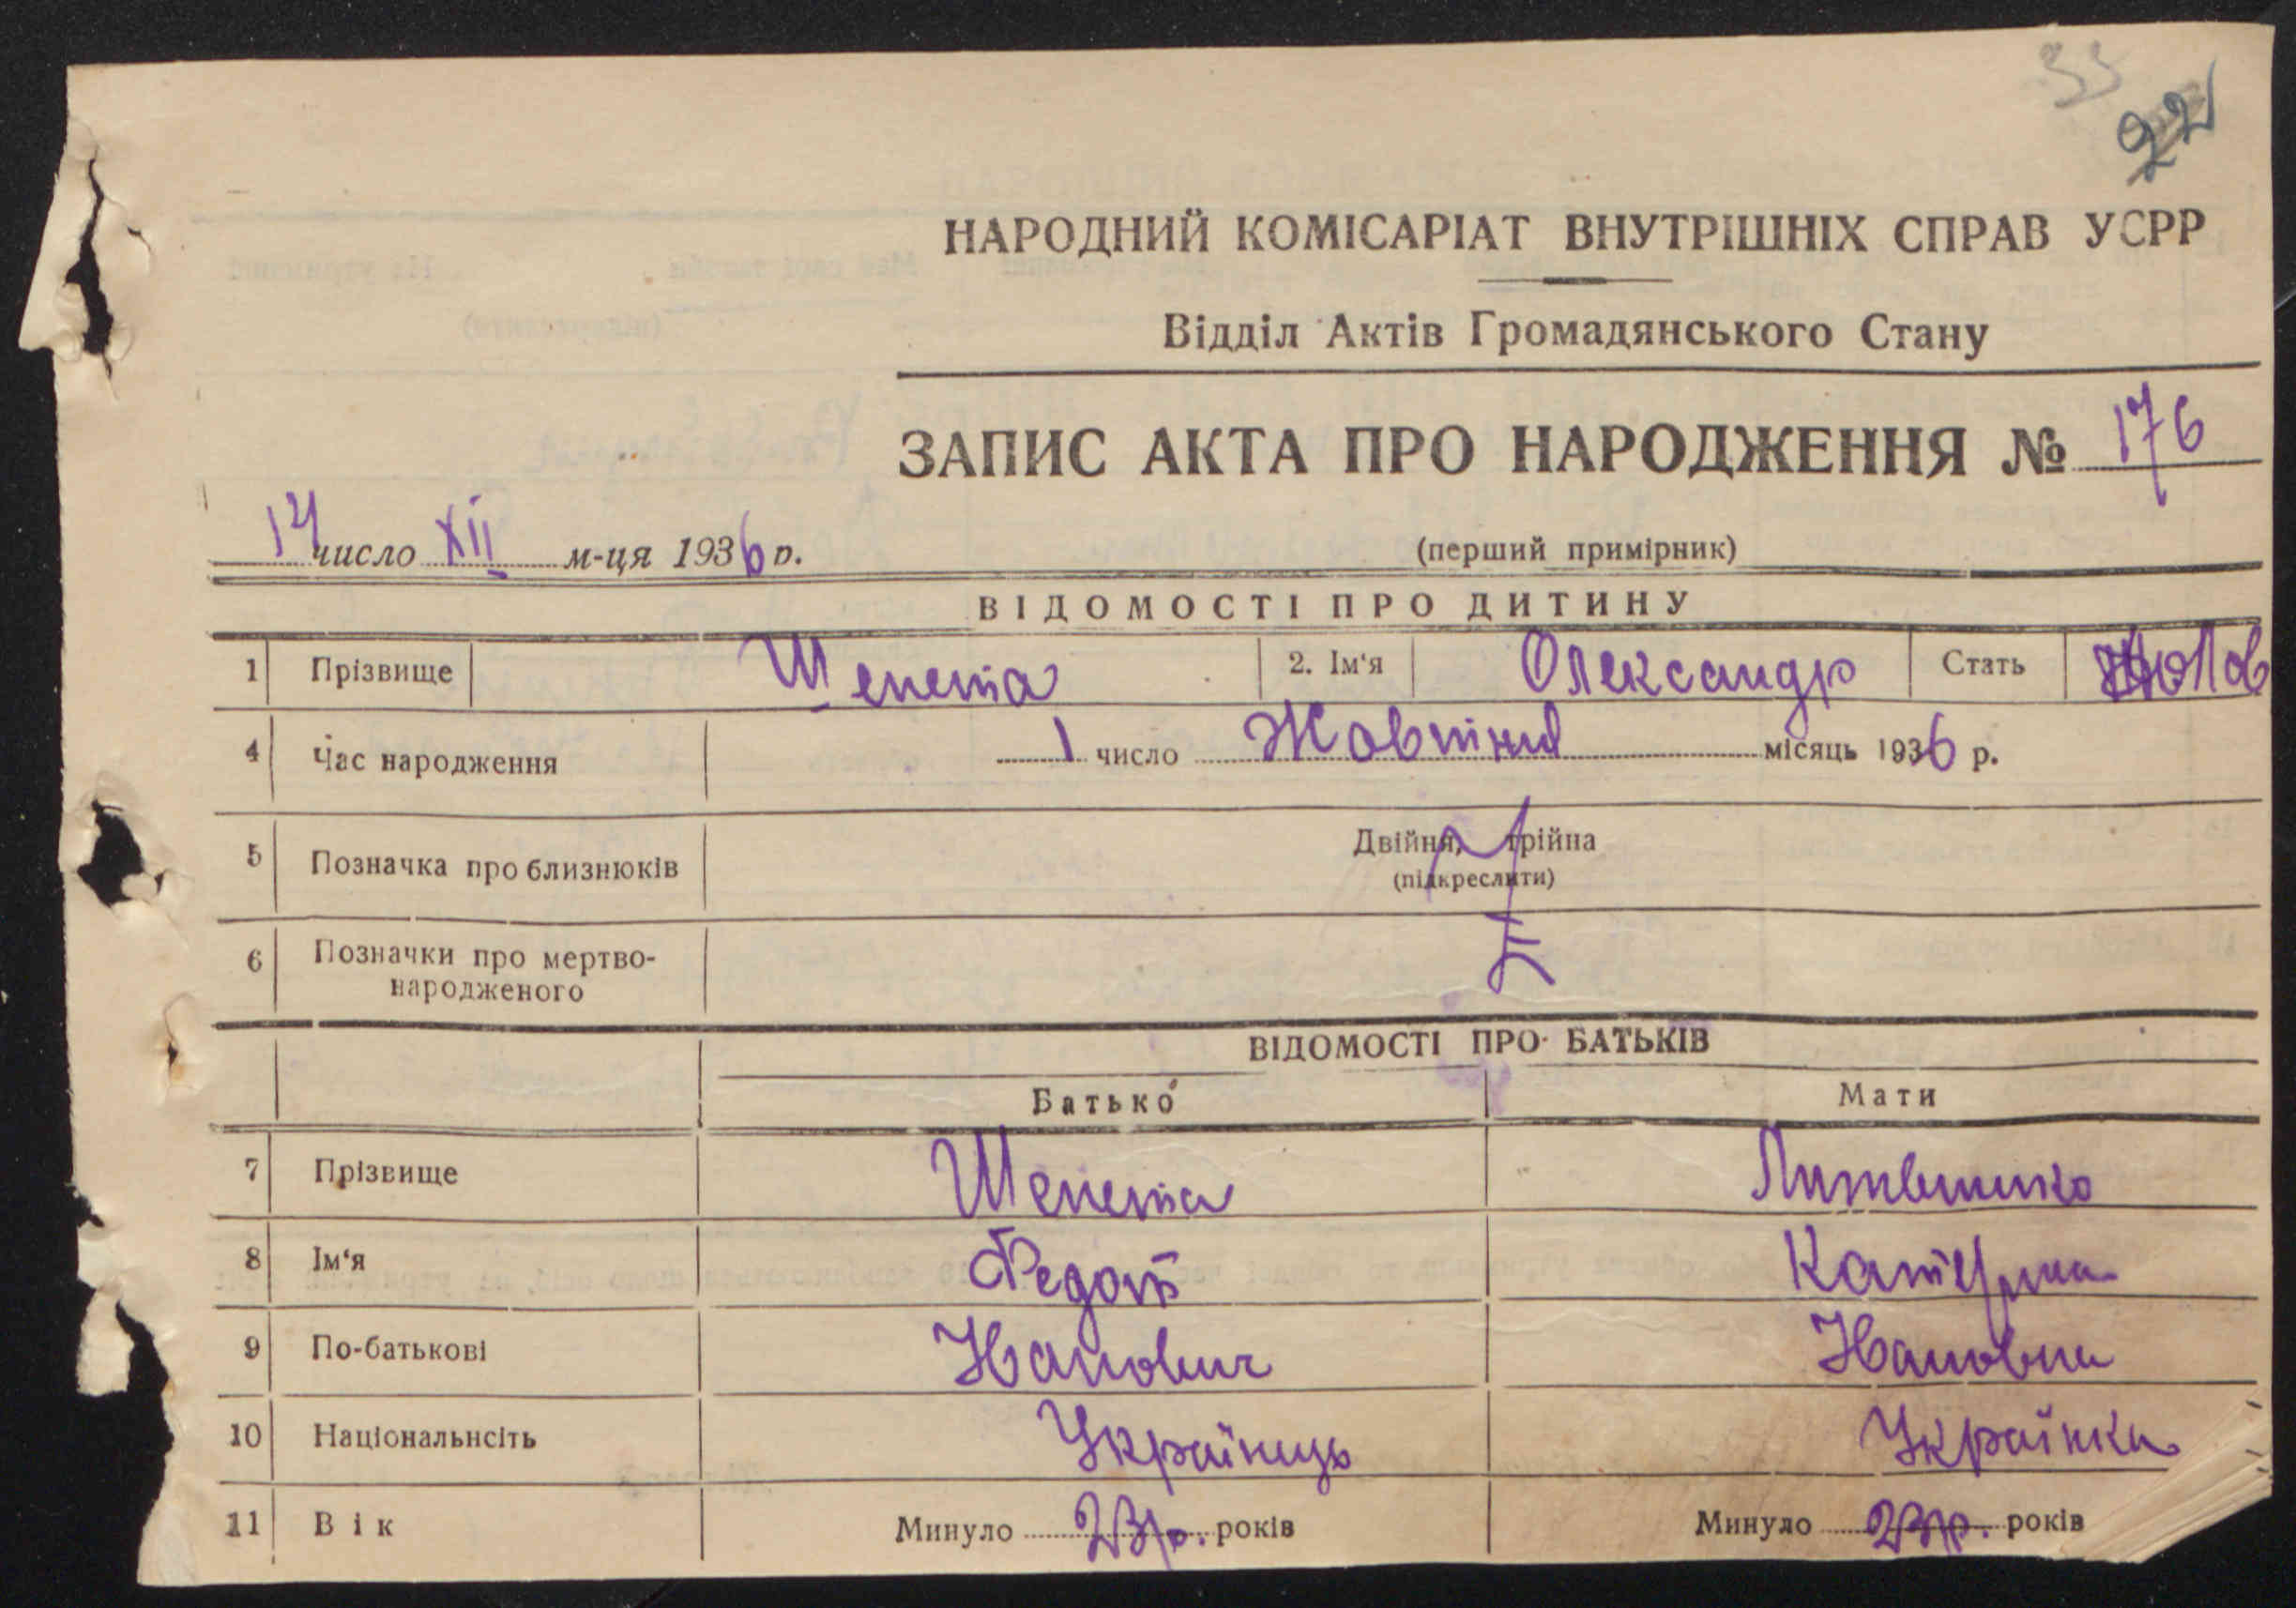 33
22
НАРОДНИЙ КОМІСАРІАТ ВНУТРІШНІХ СПРАВ УСРР
Відділ Актів Громадянського Стану
ЗАПИС АКТА ПРО НАРОДЖЕННЯ № 176
14 число XII м-ця 1936 р.
(перший примірник)
ВІДОМОСТІ ПРО ДИТИНУ
1 Прізвище Шепета 2. Ім'я Олександр Стать Чолов
4 Час народження 1 число Жовтня місяць 1936 р.
5 Позначка про близнюків Двійня, трійна
(підкреслити)
6 Позначки про мертво-
народженого
ВІДОМОСТІ ПРО БАТЬКІВ
Батько Мати
7 Прізвище Шепета Литвиненко
8 Ім'я Федот Катерина
9 По-батькові
10 Національнсіть Українець Українка
11 Вік Минуло 23 р. років Минуло р. років